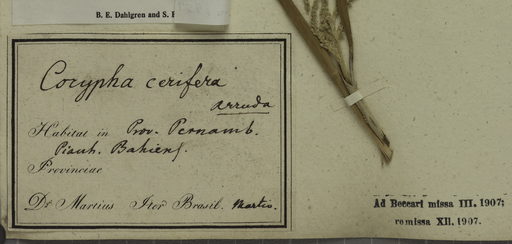 B. E. Dahlgren and S.
Corypha cerifera
Arruda
Habitat in Prov. Pernamb.
Piauh. Bahiens.
Provinciae
Dr Martius Iter Brasil. Martio.
Ad Beccari missa III. 1907;
remissa XII. 1907.